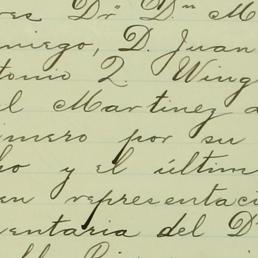 res Dr. D.n M
niego, D. Juan
tonio Q. Wing
l Martinez d
imero por su
ho y el últim
en representaci
entaria del D